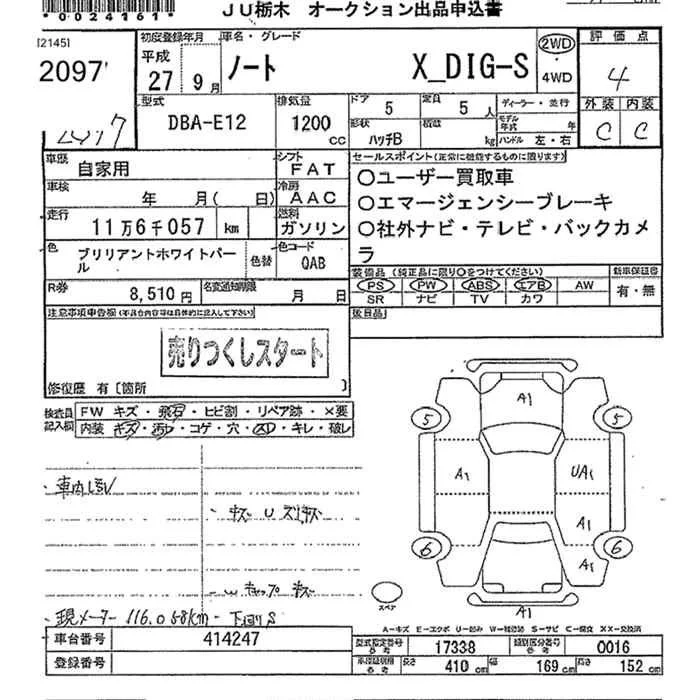 *0024161*
JU栃木 オークション出品申込書
初度登録年月 車名・グレード 評価点
21451
2097
平成
27 9月
ノート X_DIG-S
2WD
4WD
4
外装 内装
C C
型式 排気量 ドア 定員 ディーラー・並行
DBA-E12 1200cc 5 5人
形状 積載 モデル年式 年
ハッチB kg ハンドル 左・右
車歴 自家用 シフト FAT
セールスポイント(正常に機能するものに限ります)
車検 年 月( 日) 冷房 AAC
〇ユーザー買取車
〇エマージェンシーブレーキ
走行 11万6千057 km 燃料 ガソリン
〇社外ナビ・テレビ・バックカメラ
色 ブリリアントホワイトパール 色替 色コード QAB
装備品(純正品に限り〇をつけてください) 新車保証書
PS PW ABS エアB AW 有・無
SR ナビ TV カワ
R券 8,510円 名変通知期限 月 日
後日品
注意事項申告欄
売りつくしスタート
修復歴 有〔箇所 〕
検査員記入欄
FW キズ・飛石・ヒビ割・リペア跡・×要
内装 キズ・汚れ・コゲ・穴・スレ・キレ・破レ
A1
5 5
A1 UA1
A1
6 6
A1
A1
スペア
現メーター 116.058km
A-キズ E-エクボ U-凹み W-補修跡 S-サビ C-腐食 XX-交換済
車台番号 414247
登録番号
型式指定番号 17338 類別区分番号 0016
長さ 410cm 幅 169cm 高さ 152cm